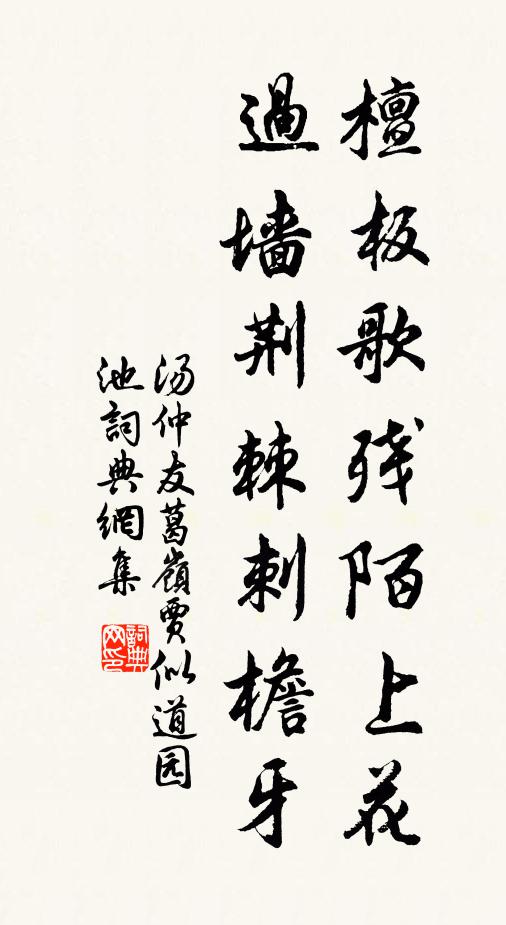 檀板歌残陌上花
過墙荆棘刺檐牙
汤仲友葛嶺贾似道园
池詞典網集
詞典网印